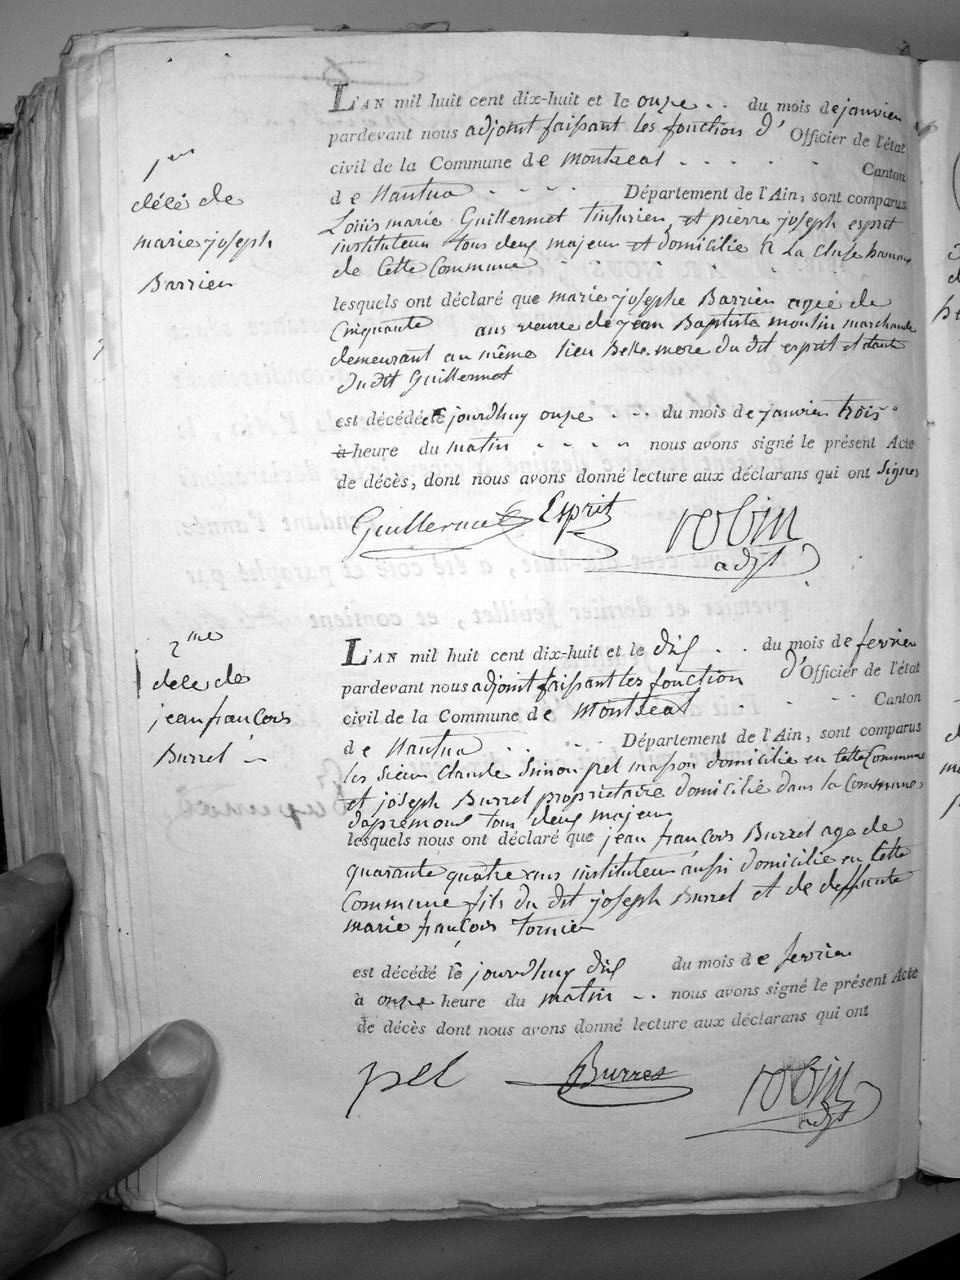 1er
décè de
marie joseph
Barrien
L'AN mil huit cent dix-huit et le onze . . du mois de janvier
pardevant nous adjoint faissant les fonction d' Officier de l'état
civil de la Commune de montreal - - - - - Canton
de Nantua - - - - Département de l'Ain, sont comparus
Louis marie Guillermet et pierre joseph esprit
instituteur tous deux majeur et domicilié a La Cluse hameau
de Cette Commune
lesquels ont déclaré que marie josephe Barrien agée de
Cinquante ans veuve de jean Baptiste moulin marchande
demeurant au même lieu Belle mere du dit esprit et tante
du dit Guillermet
est décédée le jourdhuy onze . - . du mois de janvier trois
à heure du matin - - - - nous avons signé le présent Acte
de décès, dont nous avons donné lecture aux déclarans qui ont Signes
Guillermet Esprit robin
adjt
2me
décè de
jean francois
Burrel -
L'AN mil huit cent dix-huit et le dix . . du mois de fevrier
pardevant nous adjoint faissant les fonction d'Officier de l'état
civil de la Commune de montreal - - - Canton
de Nantua . . - - . Département de l'Ain, sont comparus
les Sieur Claude Simon pel masson domicilié en Cette Commune
et joseph Burrel proprietaire domicilié dans la Commune
dapremont tous deux majeur
lesquels nous ont déclaré que jean francois Burrel age de
quarante quatre ans instituteur aussi domicilié en Cette
Commune fils du dit joseph Burrel et de deffunte
marie francois Tornier
est décédé le jourdhuy dix du mois de fevrier
à onze heure du matin - . . nous avons signé le présent Acte
de décès dont nous avons donné lecture aux déclarans qui ont
pel Burrel robin
adjt